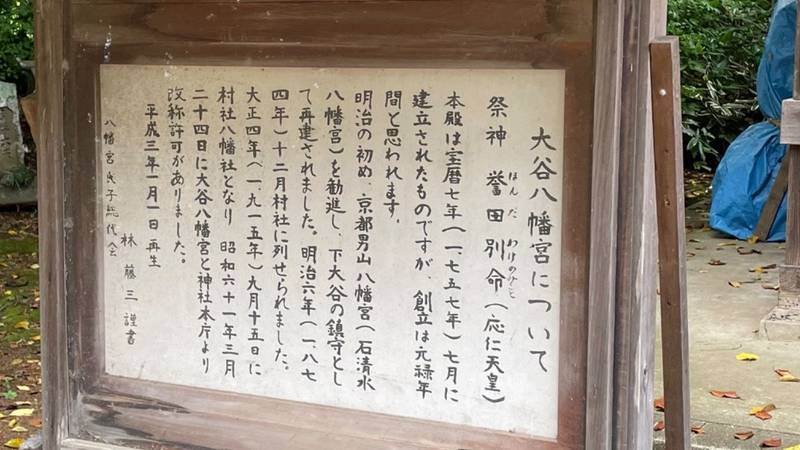 大谷八幡宮について
祭神 誉田別命（応仁天皇）
ほんだ わけのみこと
本殿は宝暦七年（一、七五七年）七月に
建立されたものですが、創立は元禄年
間と思われます。
明治の初め、京都男山八幡宮（石清水
八幡宮）を勧進し、下大谷の鎮守とし
て再建されました。明治六年（一、八七
四年）十二月村社に列せられました。
大正四年（一、九一五年）九月十五日に
村社八幡社となり 昭和六十一年三月
二十四日に大谷八幡宮と神社本庁より
改称許可がありました。
平成三年一月一日再生
林藤三謹書
八幡宮氏子総代会